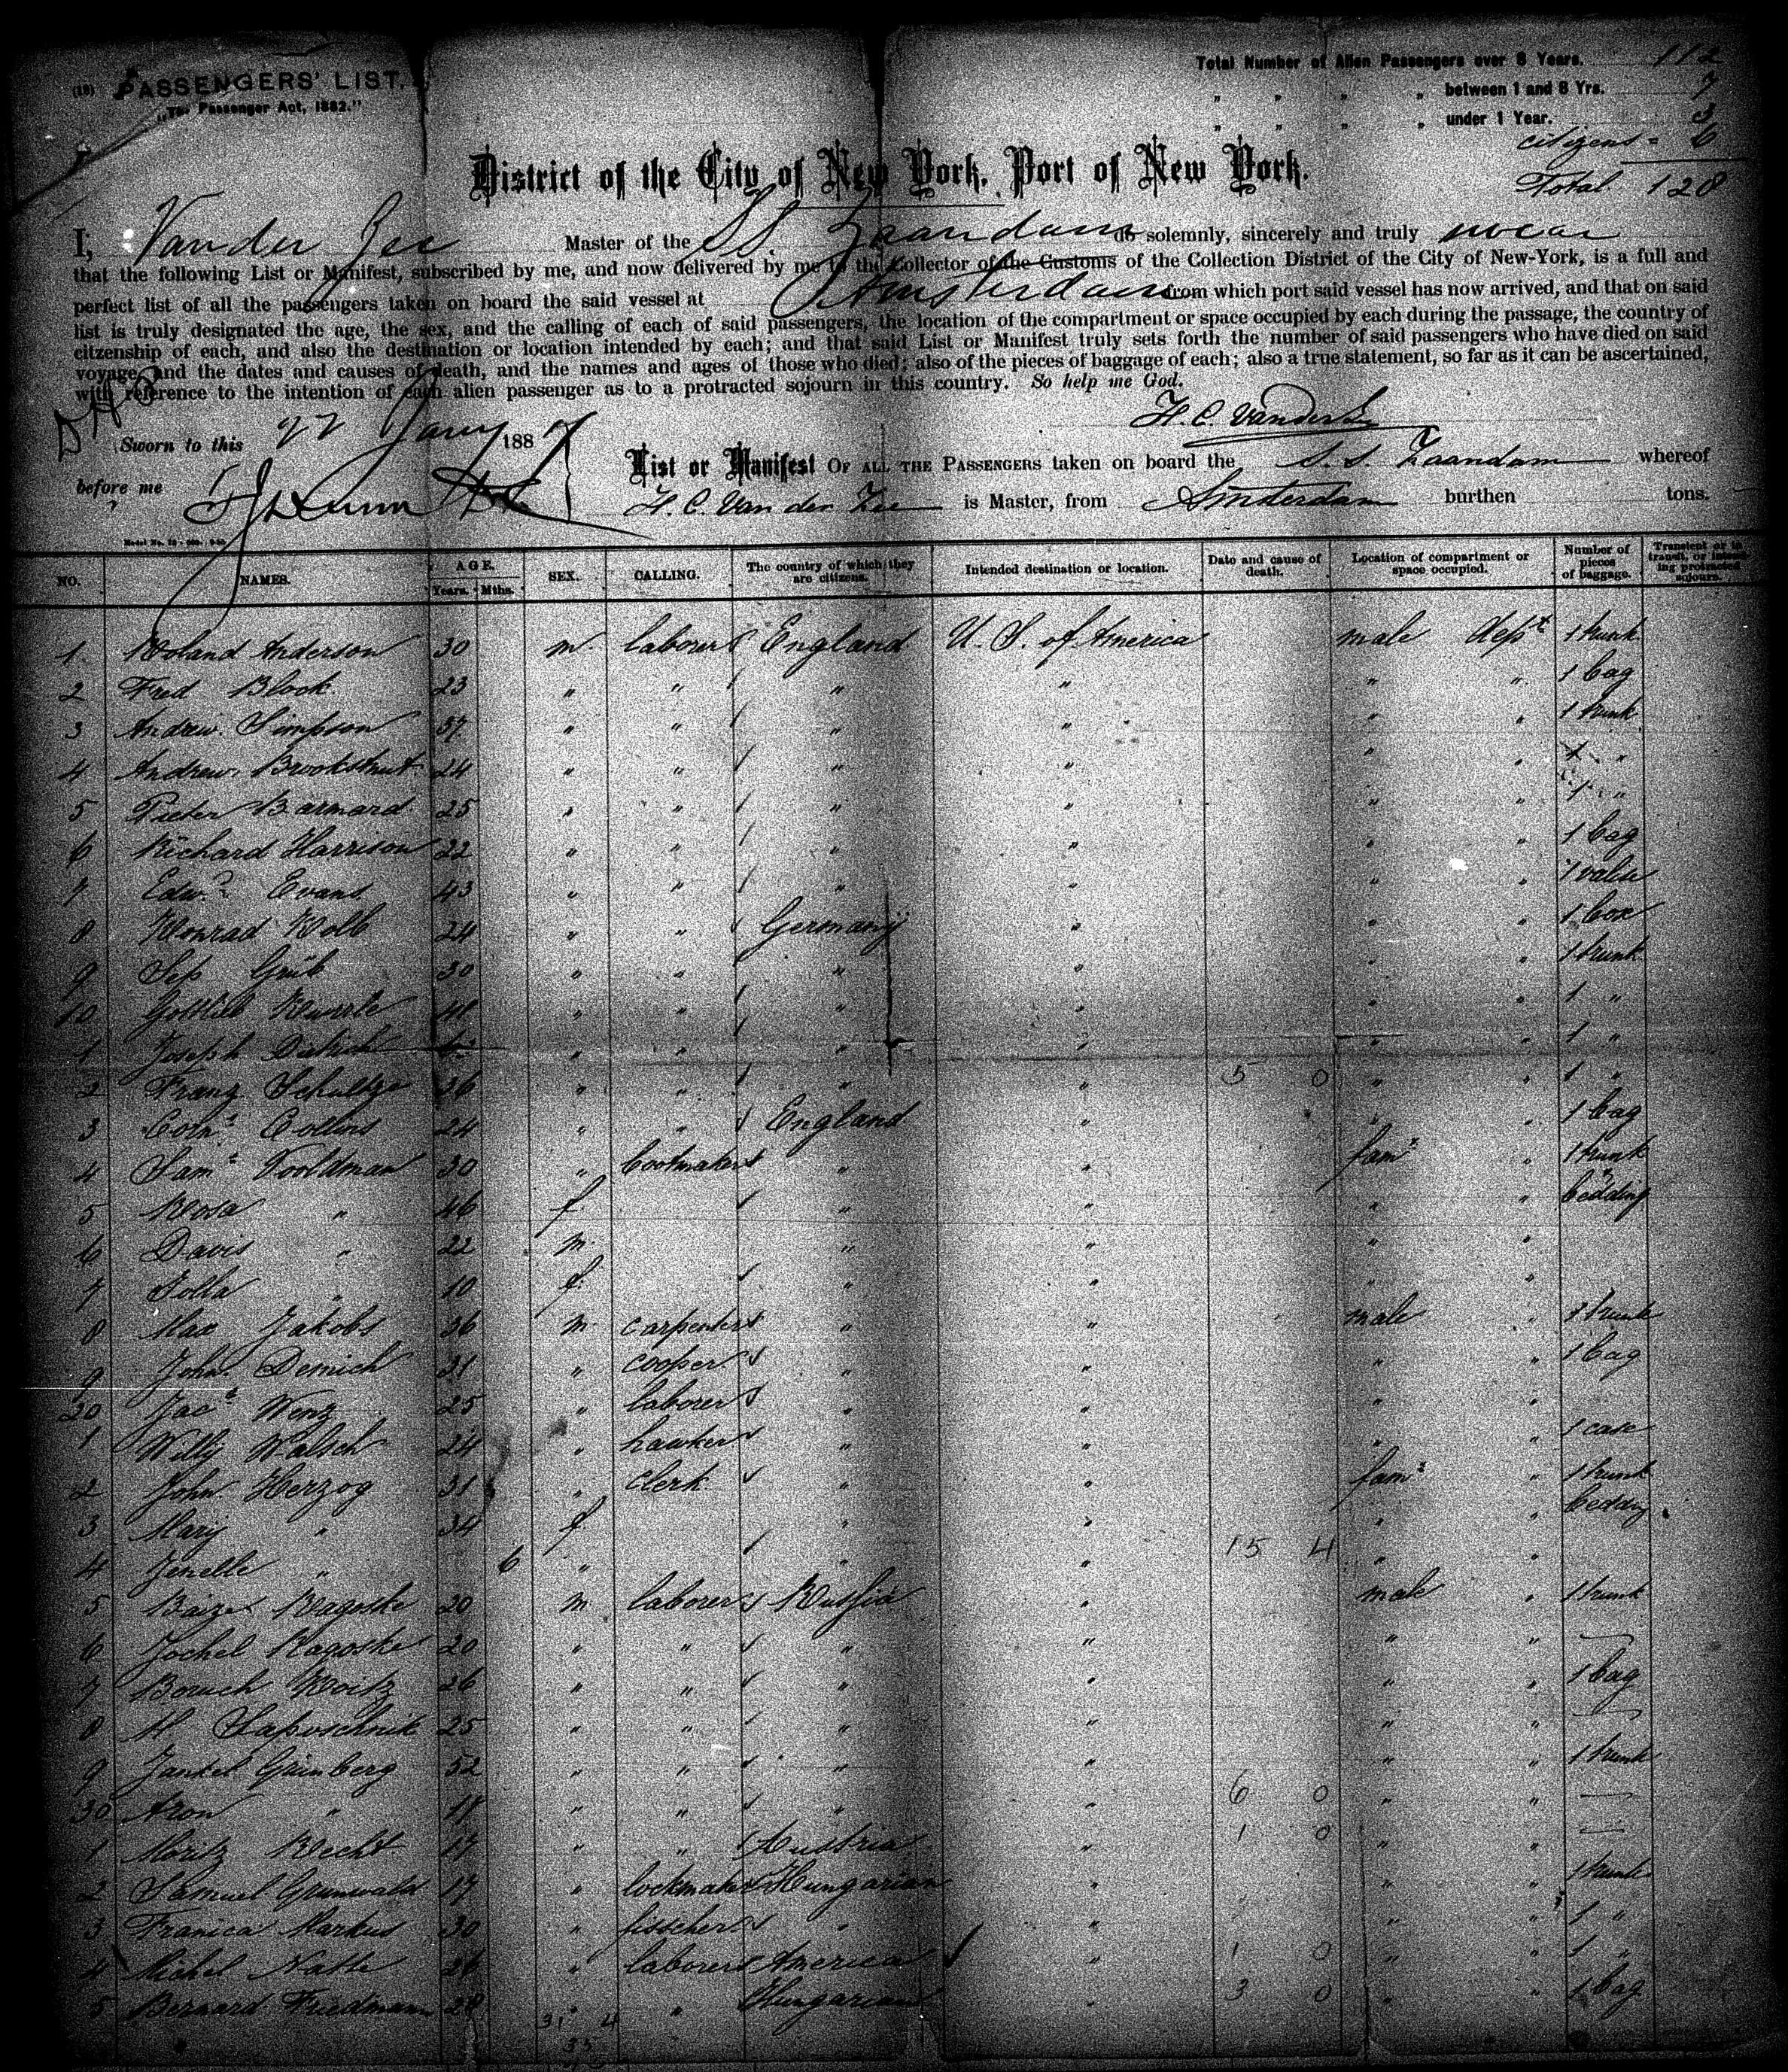 (19) PASSENGERS' LIST.
„The Passenger Act, 1882."
Total Number of Alien Passengers over 8 Years. 112
„ „ „ „ between 1 and 8 Yrs. 7
„ „ „ „ under 1 Year. 3
citizens = 6
Total 128
District of the City of New York, Port of New York.
I, Vander Zee Master of the SS. Zaandam do solemnly, sincerely and truly swear
that the following List or Manifest, subscribed by me, and now delivered by me to the Collector of the Customs of the Collection District of the City of New-York, is a full and
perfect list of all the passengers taken on board the said vessel at Amsterdam from which port said vessel has now arrived, and that on said
list is truly designated the age, the sex, and the calling of each of said passengers, the location of the compartment or space occupied by each during the passage, the country of
citzenship of each, and also the destination or location intended by each; and that said List or Manifest truly sets forth the number of said passengers who have died on said
voyage, and the dates and causes of death, and the names and ages of those who died; also of the pieces of baggage of each; also a true statement, so far as it can be ascertained,
with reference to the intention of each alien passenger as to a protracted sojourn in this country. So help me God.
H. C. Vander Zee
Sworn to this 22 Jany 1887
before me
List or Manifest OF ALL THE PASSENGERS taken on board the S. S. Zaandam whereof
H. C. Van der Zee is Master, from Amsterdam burthen tons.
NO. NAMES. AGE. Years. Mths. SEX. CALLING. The country of which they are citizens. Intended destination or location. Date and cause of death. Location of compartment or space occupied. Number of pieces of baggage. Transient or in transit, or intending protracted sojourn.
1. Roland Anderson 30 m. laborer England U. S. of America male dept 1 trunk
2 Fred Block 23 „ „ „ „ „ „ 1 bag
3 Andrew Simpson 37 „ „ „ „ „ „ 1 trunk
4 Andrew 24 „ „ „ „ „ „ 1 „
5 Pieter Barmard 25 „ „ „ „ „ „ 1 „
6 Richard Harrison 22 „ „ „ „ „ „ 1 bag
7 Edwd Evans 43 „ „ „ „ „ „ 1 valise
8 Konrad Kolb 24 „ „ Germany „ „ „ 1 box
9 Sep Grüb 30 „ „ „ „ „ „ 1 trunk
10 Gottlieb „ „ „ „ „ „ 1 „
1 Joseph Dietrich „ „ „ „ „ „ 1 „
2 Franz Schultze 36 „ „ „ „ 5 0 „ „ 1 „
3 Corns Collins 24 „ „ England „ „ „ 1 bag
4 Saml Vooldman 30 „ bootmaker „ „ fams „ 1 trunk
5 Rosa „ 46 f. „ „ „ „ bedding
6 Davis „ 22 m. „ „ „ „
7 „ 10 f. „ „ „ „
8 Max Jakobs 36 m. carpenter „ „ male „ 1 trunk
9 John Demich 21 „ cooper „ „ „ „ 1 bag
20 Jacs Wenz 25 „ laborer „ „ „ „
1 Willy Walsch 24 „ hawker „ „ „ „ 1 case
2 John Herzog 31 „ clerk „ „ fams „ 1 trunk
3 Mary „ 34 f. „ „ „ „ bedding
4 Jenelle „ 6 „ „ „ 15 4 „ „
5 Ragoske 20 m. laborer Russia „ male „ 1 trunk
6 Jochel Ragoske 20 „ „ „ „ „ „ —
7 Boruch Roitz 26 „ „ „ „ „ „ 1 bag
8 M Saposchnik 25 „ „ „ „ „ „ —
9 Jankel Grünberg 52 „ „ „ „ „ „ 1 trunk
30 Aron „ 18 „ „ „ „ 6 0 „ „ —
1 Moritz Recht 17 „ „ Austria „ 1 0 „ „ —
2 Samuel Grunwald 17 „ lockmaker Hungarian „ 1 trunk
3 Franica Markus 30 „ fisscher „ „ „ „ 1 „
4 Michel Natte 26 „ laborer America „ 1 0 „ „ 1 „
5 Bernard Friedmann 28 „ „ Hungarian „ 3 0 „ „ 1 bag
31 4
35